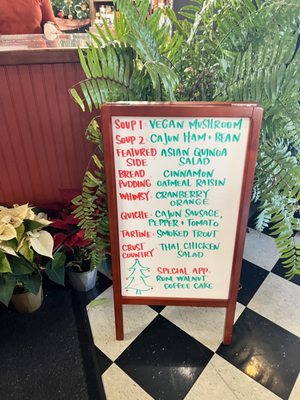 SOUP 1: VEGAN MUSHROOM
SOUP 2: CAJUN HAM + BEAN
FEATURED ASIAN QUINOA
SIDE SALAD
BREAD CINNAMON
PUDDING: OATMEAL RAISIN
WHIMSY: CRANBERRY
ORANGE
QUICHE: CAJUN SAUSAGE,
PEPPER + TOMATO
TARTINE: SMOKED TROUT
CRUST THAI CHICKEN
COUNTRY: SALAD
SPECIAL APP:
RUM WALNUT
COFFEE CAKE